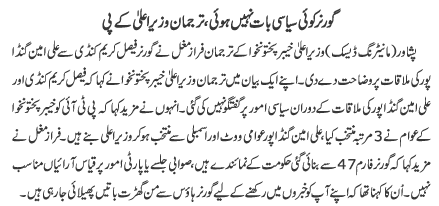 گورنر کوئی سیاسی بات نہیں ہوئی، ترجمان وزیراعلیٰ کے پی
پشاور (مانیٹرنگ ڈیسک) وزیراعلیٰ خیبر پختونخوا کے ترجمان فراز مغل نے گورنر فیصل کریم کنڈی سے علی امین گنڈا
پور کی ملاقات پر وضاحت دے دی۔ اپنے ایک بیان میں ترجمان وزیراعلیٰ خیبر پختونخوا نے کہا کہ فیصل کریم کنڈی اور
علی امین گنڈا پور کی ملاقات کے دوران سیاسی امور پر گفتگو نہیں کی گئی۔ انہوں نے مزید کہا کہ پی ٹی آئی کو خیبر پختونخوا
کے عوام نے 3 مرتبہ منتخب کیا، علی امین گنڈا پور عوامی ووٹ اور اسمبلی سے منتخب ہو کر وزیراعلیٰ بنے ہیں۔ فراز مغل نے
مزید کہا کہ گورنر فارم 47 سے بنائی گئی حکومت کے نمائندے ہیں، صوابی جلسے یا پارٹی امور پر قیاس آرائیاں مناسب
نہیں۔ اُن کا کہنا تھا کہ اپنے آپ کو خبروں میں رکھنے کے لیے گورنر ہاؤس سے من گھڑت باتیں پھیلائی جا رہی ہیں۔